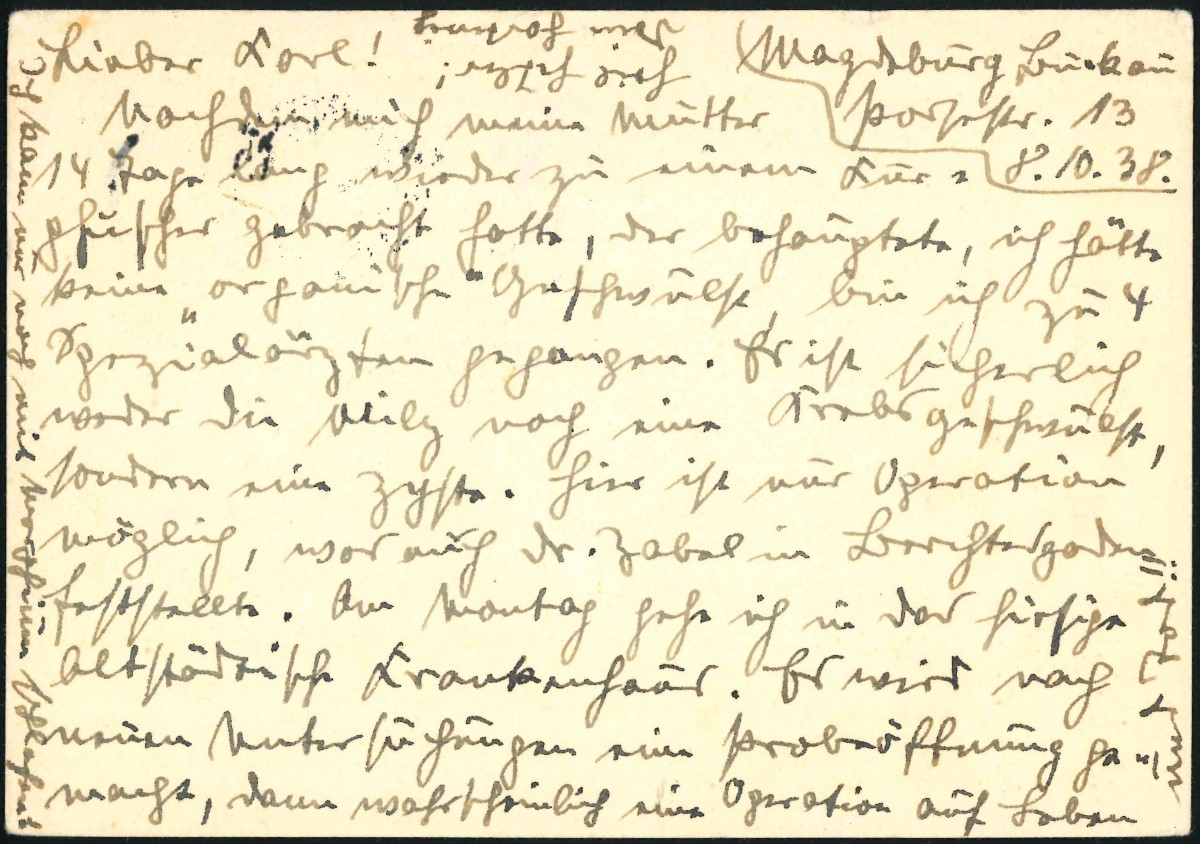 Lieber Karl!
Magdeburg Buckau
Porsestr. 13
8.10.38.
Nachdem mich meine Mutter
14 Tage lang wieder zu einem Kur=
pfuscher gebracht hatte, der behauptete, ich hätte
keine "organische" Geschwulst, bin ich zu 4
Spezialärzten gegangen. Es ist sicherlich
weder die Milz noch eine Krebsgeschwülst,
sondern eine Zyste. Hier ist nur Operation
möglich, was auch Dr. Zabel in Berchtesgaden
feststellte. Am Montag gehe ich in das hiesige
altstädtische Krankenhaus. Es wird nach
neuen Untersuchungen eine Probeöffnung ge=
macht, dann wahrscheinlich eine Operation auf Leben
und Tod
Ich kann nur noch mit Morphium schlafen!